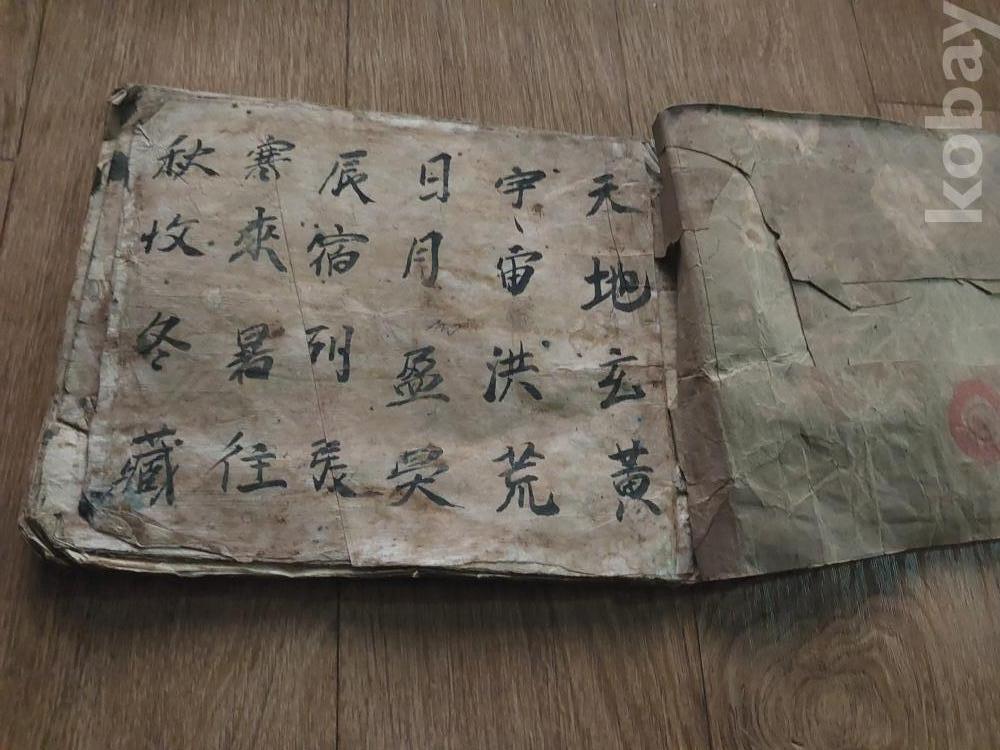 天地玄黃
宇宙洪荒
日月盈昃
辰宿列張
寒來暑往
秋收冬藏
kobay